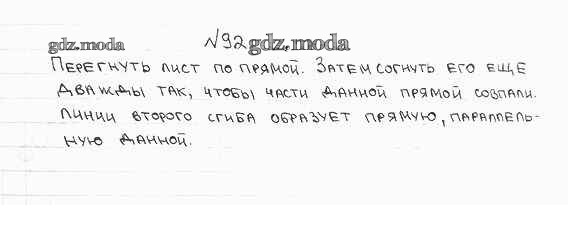 gdz.moda №92 gdz.moda
ПЕРЕГНУТЬ ЛИСТ ПО ПРЯМОЙ. ЗАТЕМ СОГНУТЬ ЕГО ЕЩЕ
ДВАЖДЫ ТАК, ЧТОБЫ ЧАСТИ ДАННОЙ ПРЯМОЙ СОВПАЛИ.
ЛИНИИ ВТОРОГО СГИБА ОБРАЗУЕТ ПРЯМУЮ, ПАРАЛЛЕЛЬ-
НУЮ ДАННОЙ.